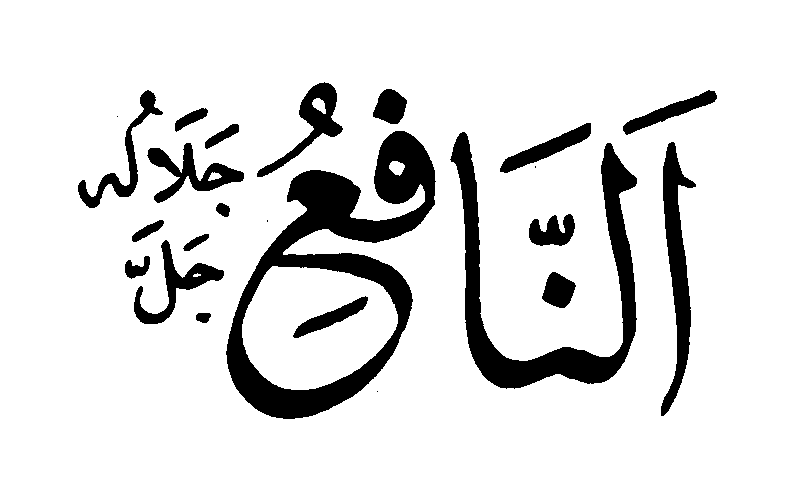 اَلنَّافِعُ
جَلَّ جَلَالُهُ